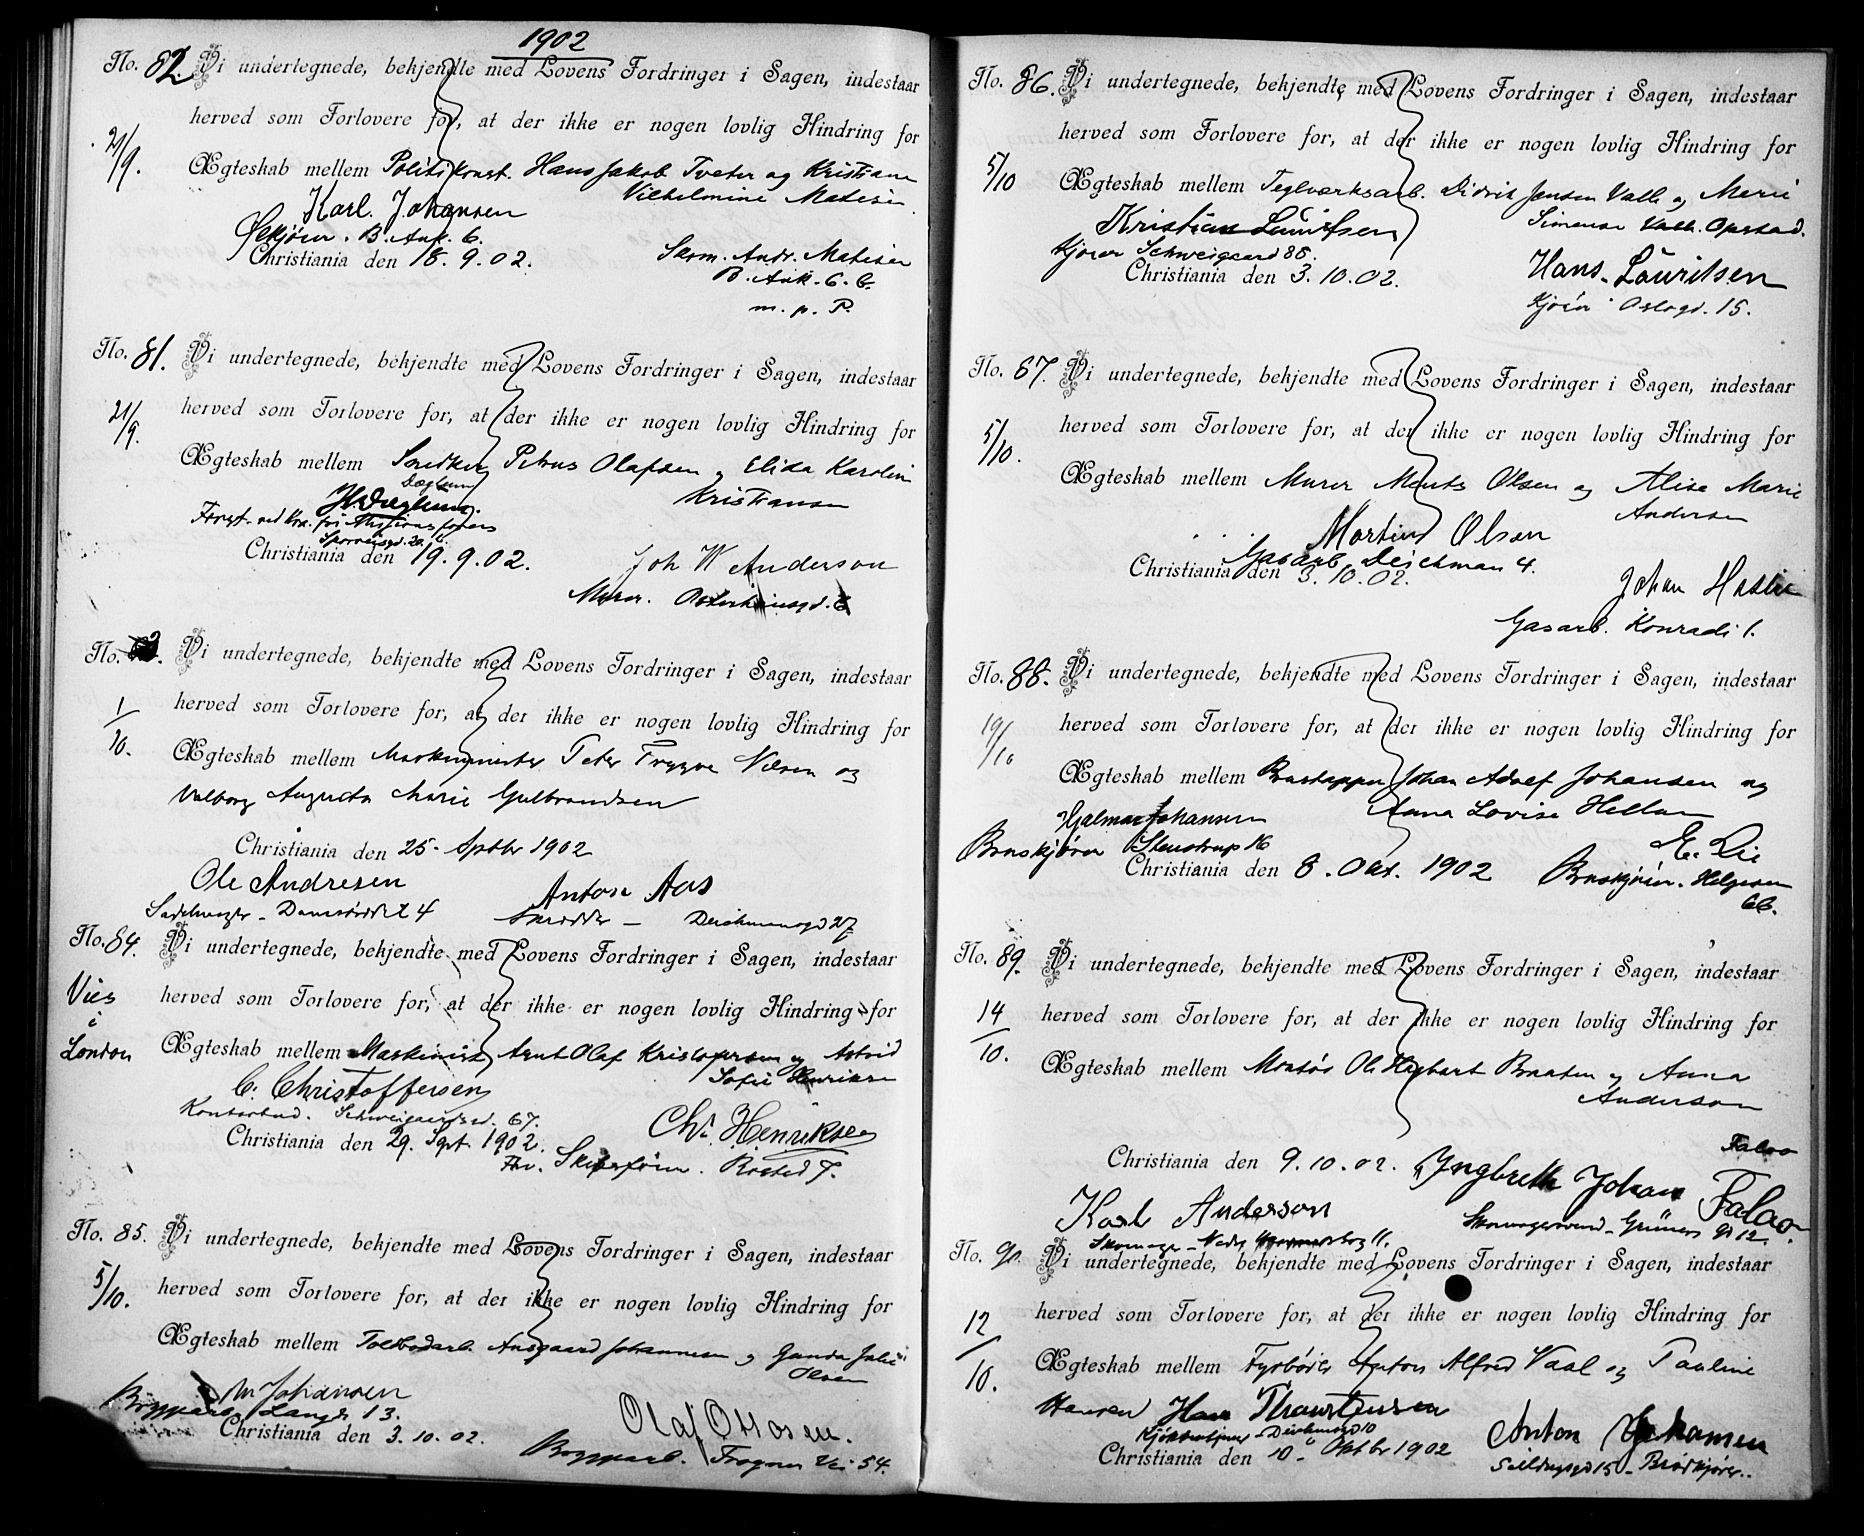 1902
No. 82. Vi undertegnede, bekjendte med Lovens Fordringer i Sagen, indestaar
herved som Forlovere for, at der ikke er nogen lovlig Hindring for
21/9. Ægteskab mellem Politikonst. Hans Jakob Tveter og Kristiane
Vilhelmine Matisen
Karl. Johansen
B. Ank. 6.
Christiania den 18.9.02.
Skom. Andr. Matisen
B. Ank. 6. C.
m. p. P.
No. 81. Vi undertegnede, bekjendte med Lovens Fordringer i Sagen, indestaar
21/9. herved som Forlovere for, at der ikke er nogen lovlig Hindring for
Ægteskab mellem Snedker Petrus Olafsen og Elida Karolin
Kristiansen
Christiania den 19.9.02.
Joh W Anderson
Murer.
No. Vi undertegnede, bekjendte med Lovens Fordringer i Sagen, indestaar
1/10. herved som Forlovere for, at der ikke er nogen lovlig Hindring for
Ægteskab mellem Peter Trygve Nilsen og
Valborg Augusta Marie Gulbrandsen
Christiania den 25. Septbr 1902
Ole Andresen
Anton Aas
4
Deichmansgd 27
No. 84. Vi undertegnede, bekjendte med Lovens Fordringer i Sagen, indestaar
Vies i London
herved som Forlovere for, at der ikke er nogen lovlig Hindring for
Ægteskab mellem Maskinist Arnt Olaf Kristofersen og Astrid
Sofie Henriksen
C. Christoffersen
Kontorbud. Schweigaardsgd. 67.
Chr. Henriksen
Christiania den 29. Sept. 1902.
No. 85. Vi undertegnede, bekjendte med Lovens Fordringer i Sagen, indestaar
5/10. herved som Forlovere for, at der ikke er nogen lovlig Hindring for
Ægteskab mellem Toldbodarb. Ansgaard Johannesen og Gunda Julie
Olsen
M Johansen
Bryggearb. Langgt. 13.
Christiania den 3.10.02.
Olaf Ottosen.
Bryggearb. Frogner Vei 54.
No. 86. Vi undertegnede, bekjendte med Lovens Fordringer i Sagen, indestaar
herved som Forlovere for, at der ikke er nogen lovlig Hindring for
5/10 Ægteskab mellem Teglverksarb. Didrik Jensen Valle og Marie
Simensen Valle. Opstad.
Kristian Lauritsen
Kjører Schweigaard 85.
Christiania den 3.10.02.
Hans. Lauritsen
Kjører Oslogd. 15.
No. 87. Vi undertegnede, bekjendte med Lovens Fordringer i Sagen, indestaar
5/10. herved som Forlovere for, at der ikke er nogen lovlig Hindring for
Ægteskab mellem Murer Ments Olsen og Alise Marie
Andersen
Martin Olsen
Gasarb. Deichman 4.
Christiania den 3.10.02.
Johan
Gasarb. Konradi 1.
No. 88. Vi undertegnede, bekjendte med Lovens Fordringer i Sagen, indestaar
19/10 herved som Forlovere for, at der ikke er nogen lovlig Hindring for
Ægteskab mellem Brustapper Johan Adolf Johansen og
Anna Lovise
Hjalmar Johansen
Bruskjører Stenstrup 16
E. Lie
Christiania den 8. Okt. 1902
Bruskjører. Helgesen
66.
No. 89. Vi undertegnede, bekjendte med Lovens Fordringer i Sagen, indestaar
14/10. herved som Forlovere for, at der ikke er nogen lovlig Hindring for
Ægteskab mellem Montør Ole Herbart Braaten og Anna
Anderson
Christiania den 9.10.02.
Falao
Ingbreth Johan Falao
Karl Anderson
Skomagersvend - Grüners gd 12.
No. 90. Vi undertegnede, bekjendte med Lovens Fordringer i Sagen, indestaar
12/10. herved som Forlovere for, at der ikke er nogen lovlig Hindring for
Ægteskab mellem Fyrbøder Anton Alfred Vaal og Pauline
Hansen
Hans Thorstensen
Christiania den 10. Oktbr 1902
Anton Johansen
15 - Brødkjører.